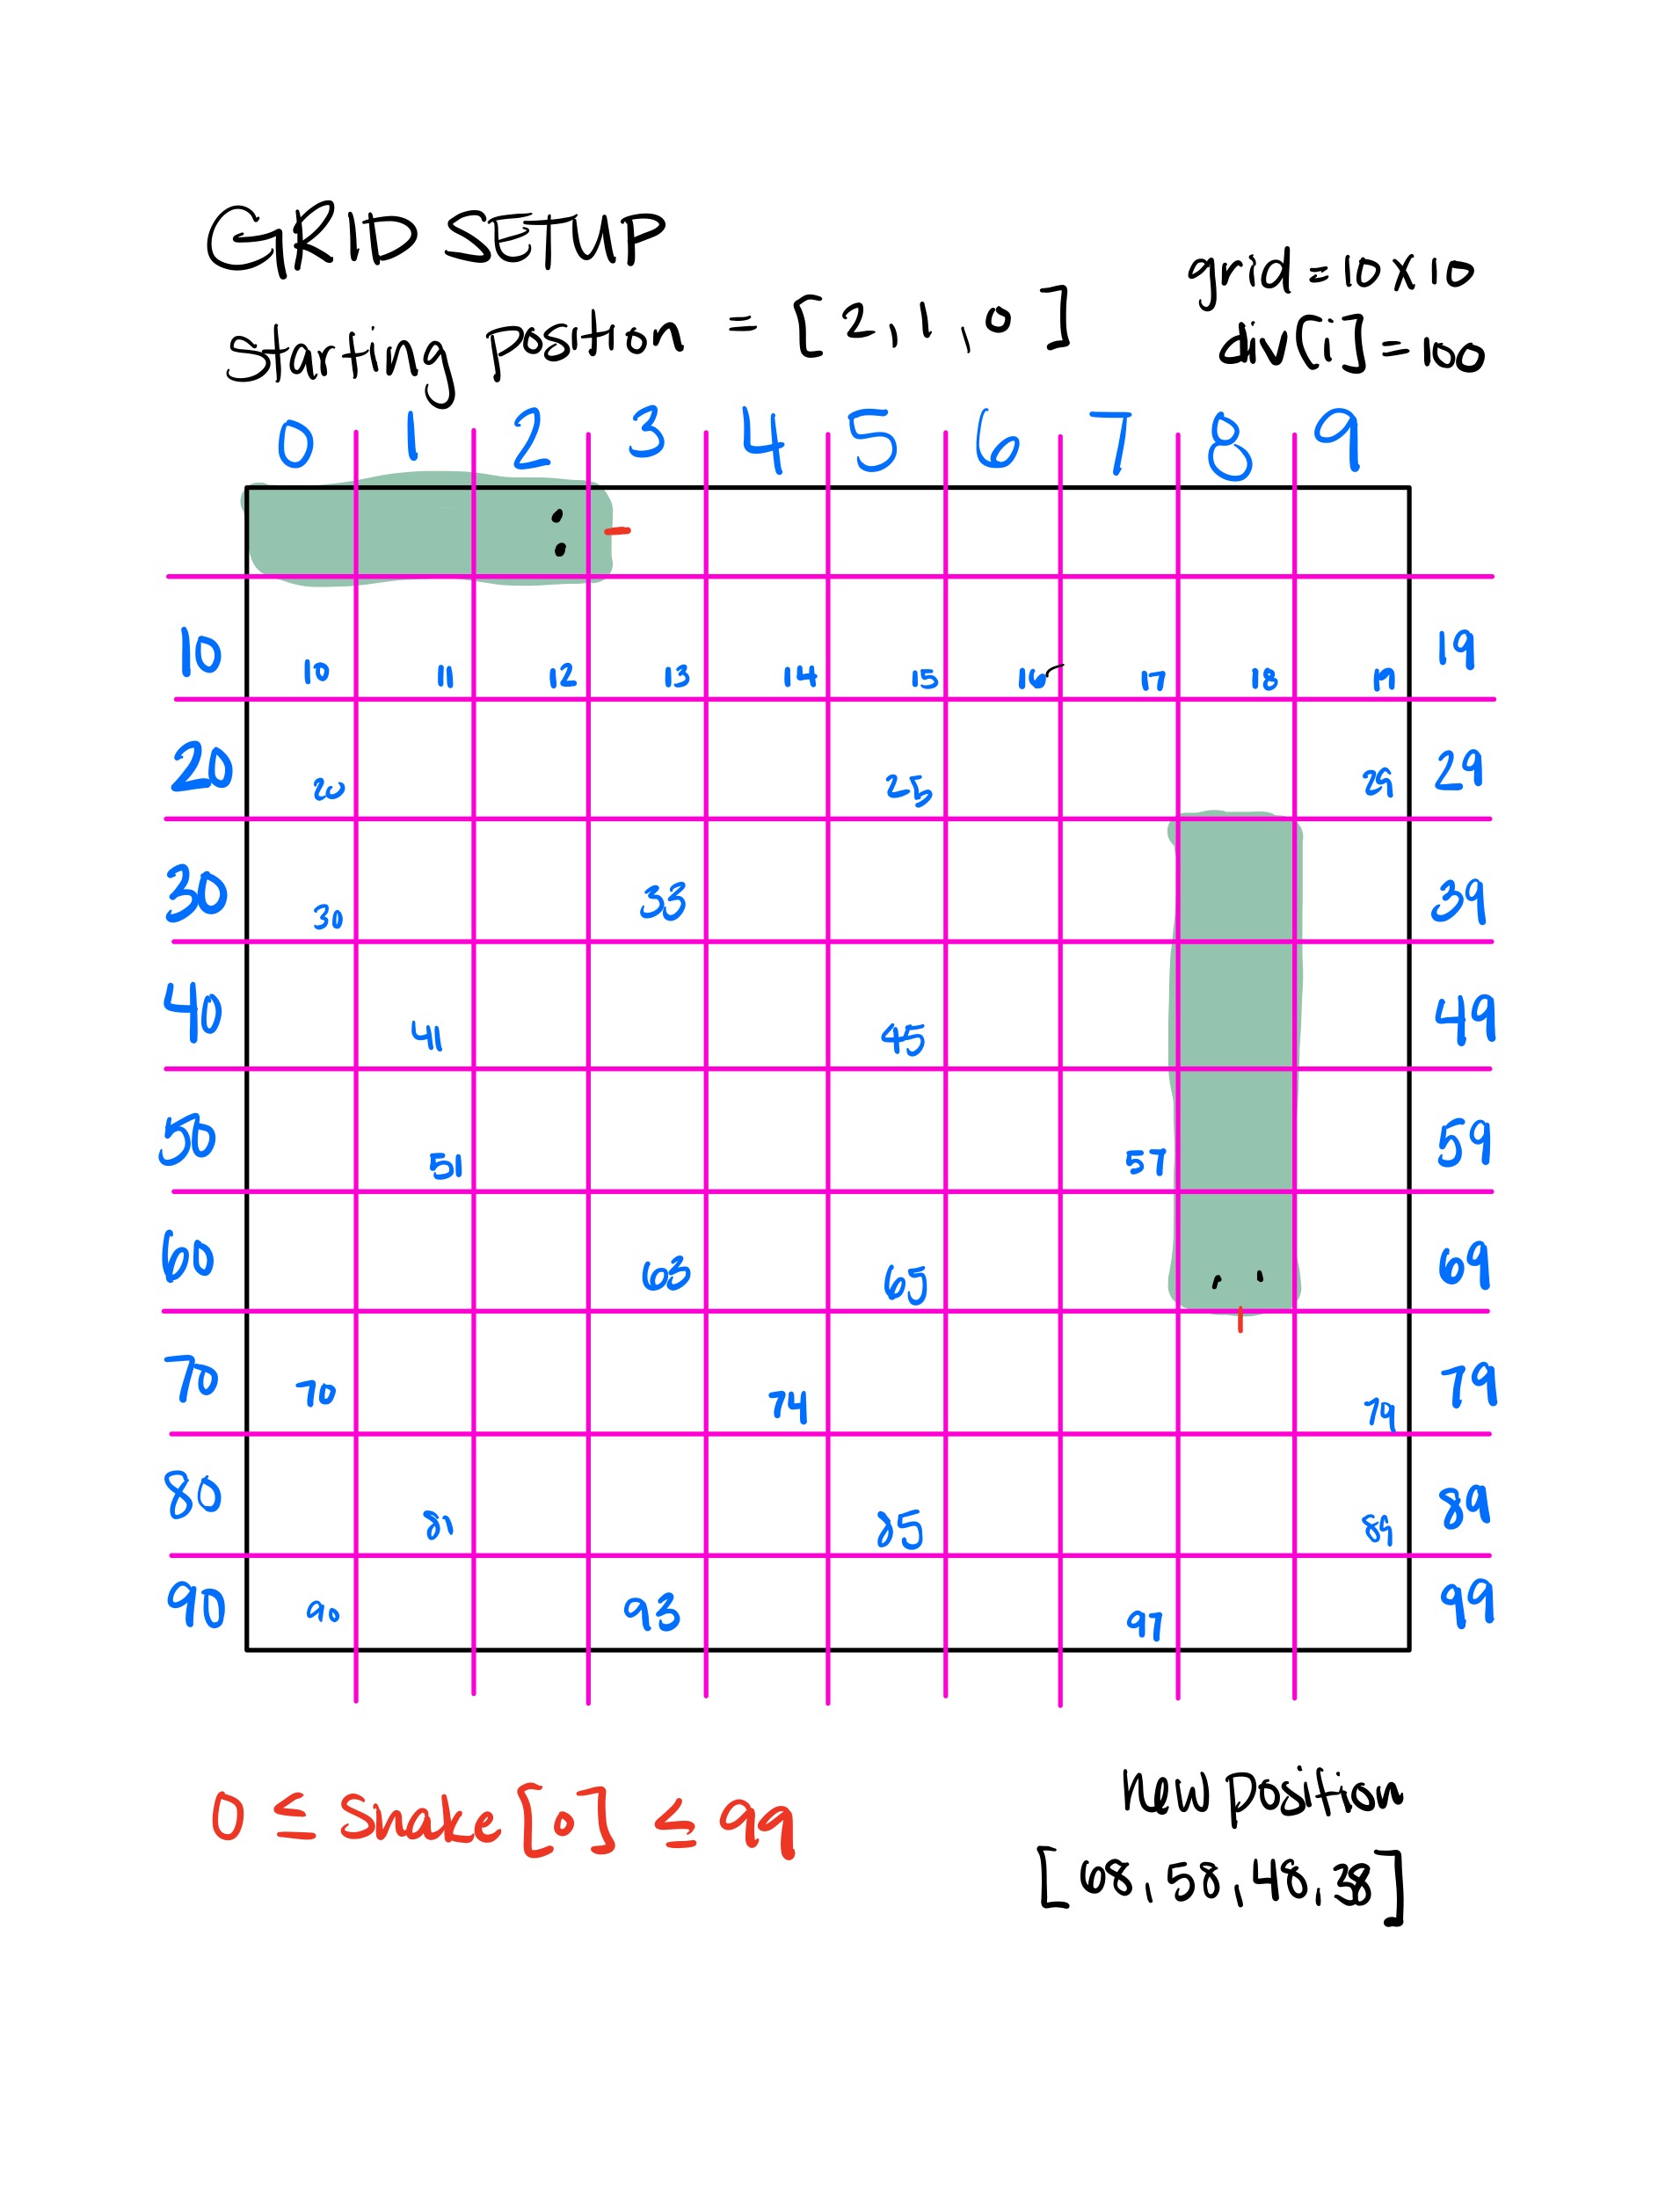 GRID SETUP
starting position = [2,1,0]
grid = 10 x 10
div[i] = 100
0 1 2 3 4 5 6 7 8 9
10 10 11 12 13 14 15 16 17 18 19 19
20 20 25 29 29
30 30 33 39
40 41 45 49
50 51 57 59
60 63 65 69
70 70 74 79 79
80 81 85 89 89
90 90 93 97 99
0 ≤ snake[0] ≤ 99
new position
[68,58,48,38]